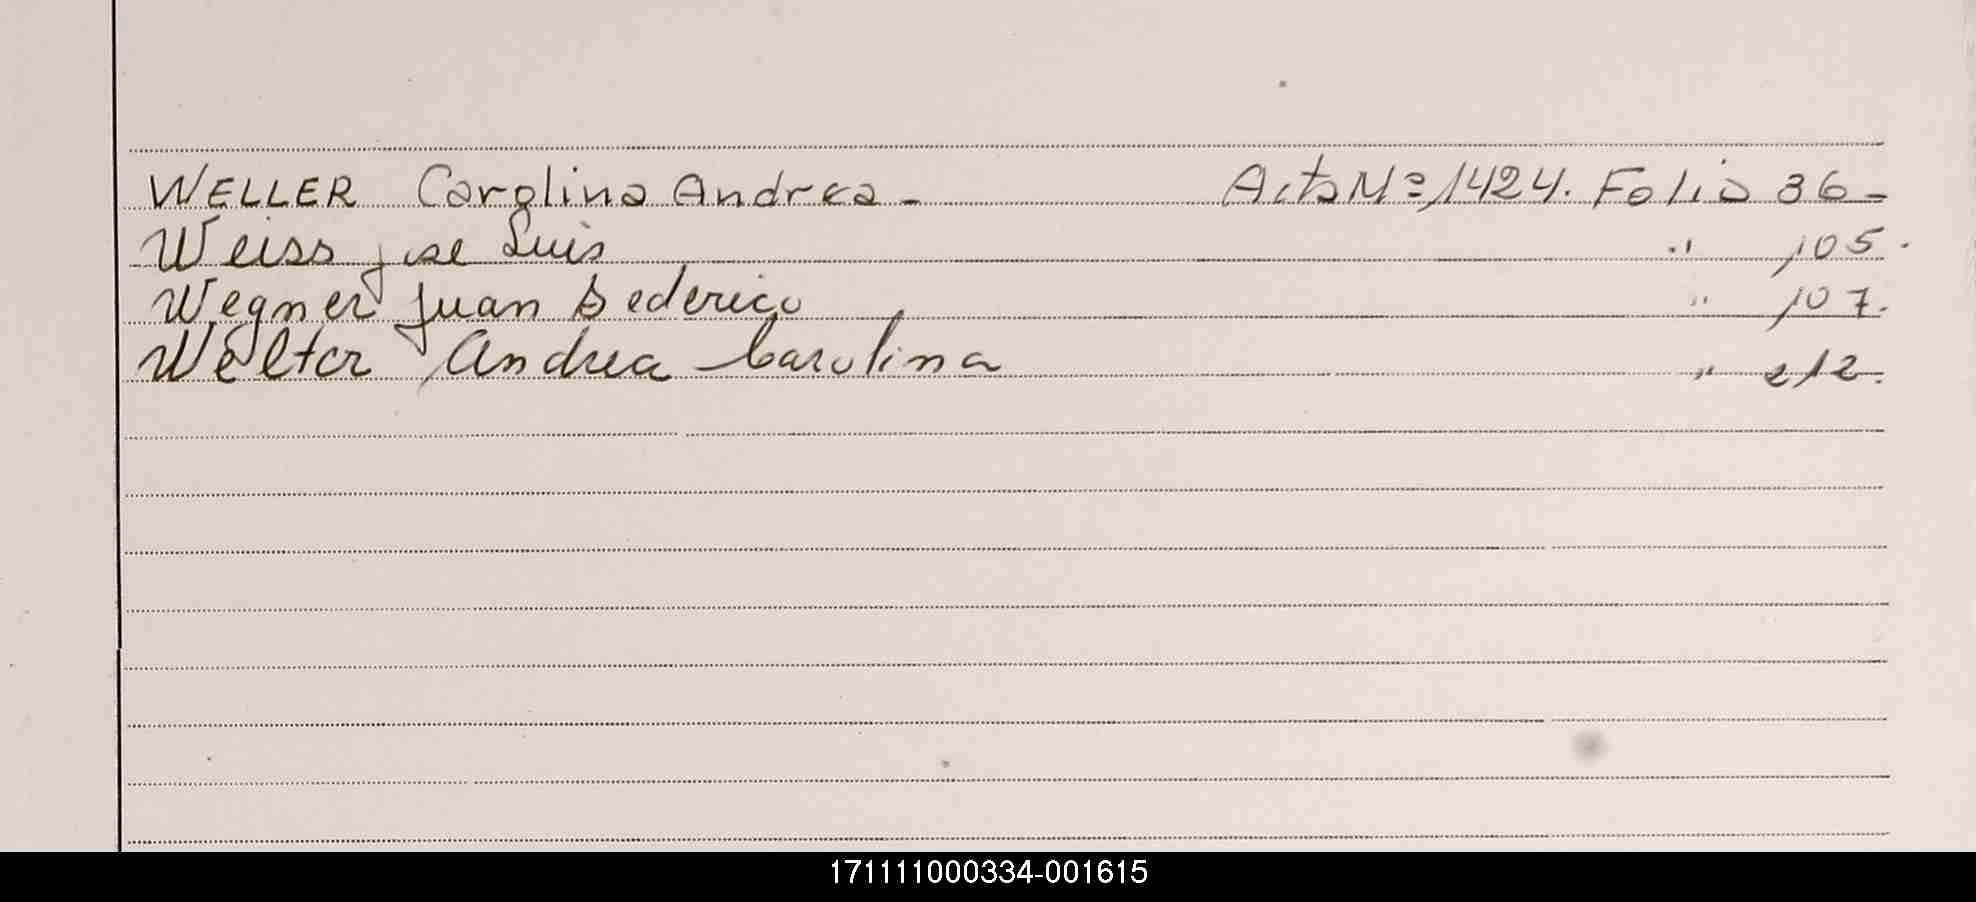 WELLER Carolina Andrea - Acta Nº 1424. Folio 36 -
Weiss jose Luis " 105.
Wegner Juan Federico " 107.
Welter Andrea Carolina " 212.
171111000334-001615